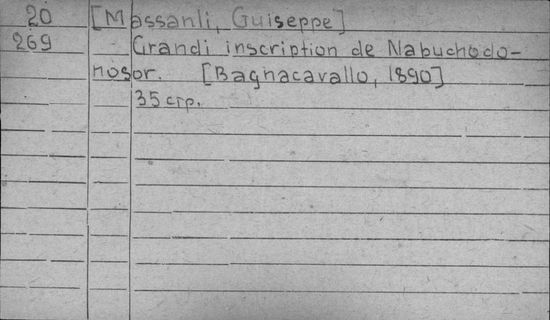 20 [Massanli, Guiseppe]
269 Grandi inscription de Nabuchodo-
nosor. [Bagnacavallo, 1890]
35 стр.